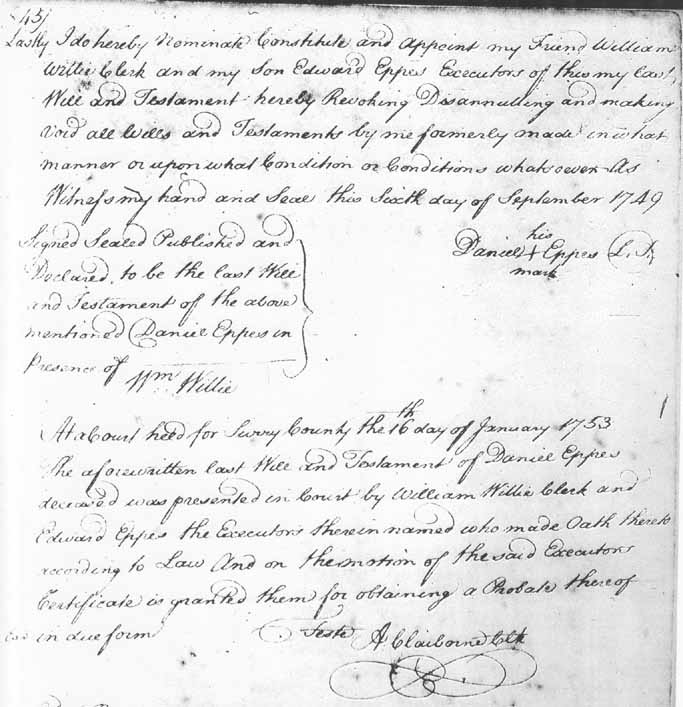 45)
Lastly I do hereby Nominate Constitute and appoint my Friend William
Willie Clerk and my Son Edward Eppes Executors of this my last
Will and Testament hereby Revoking Disannulling and making
void all Wills and Testaments by me formerly made in what
manner or upon what Condition or Conditions whatsoever As
Witness my hand and Seal this Sixth day of September 1749
his
Daniel + Eppes L. S.
mark
Signed Sealed Published and
Declared to be the last Will
and Testament of the above
mentioned Daniel Eppes in
Presence of
Wm. Willie
At a Court held for Surry County the 16th day of January 1753
The aforewritten last Will and Testament of Daniel Eppes
deceased was presented in Court by William Willie Clerk and
Edward Eppes the Executors therein named who made Oath thereto
according to Law And on the motion of the said Executors
Certificate is granted them for obtaining a Probate thereof
in due form
Teste A Claiborne Clk